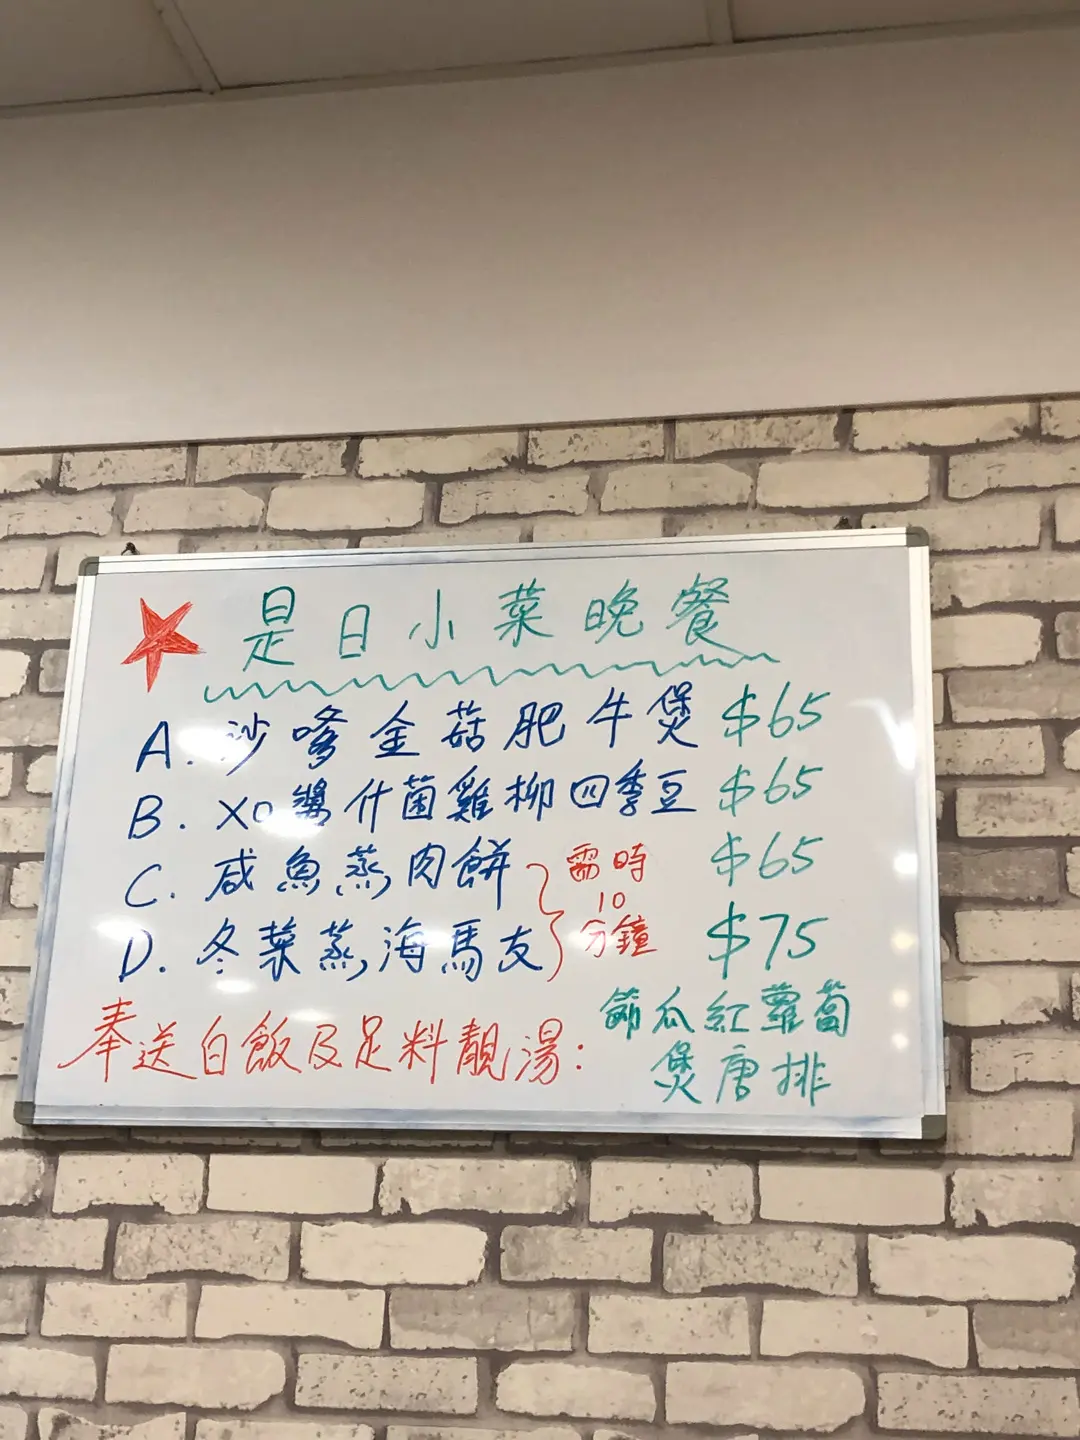 是日小菜晚餐
A. 沙嗲金菇肥牛煲 $65
B. XO醬什菌雞柳四季豆 $65
C. 咸魚蒸肉餅 $65
D. 冬菜蒸海馬友 $75
需時
10
分鐘
奉送白飯及足料靚湯:
節瓜紅蘿蔔
煲唐排